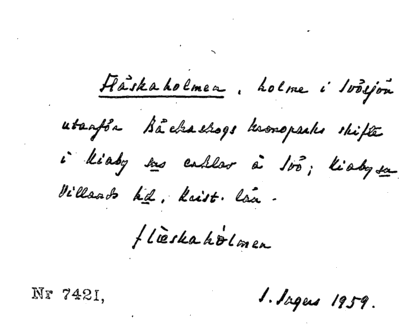 Flåskaholmen, holme i Ivösjön
utanför Bäckaskogs kronoparks skifte
i Kiaby sns enklav å Ivö; Kiaby sn,
Villands hd, Krist. län.
flèskahólmen
Nr 7421,
I. Ingers 1959.